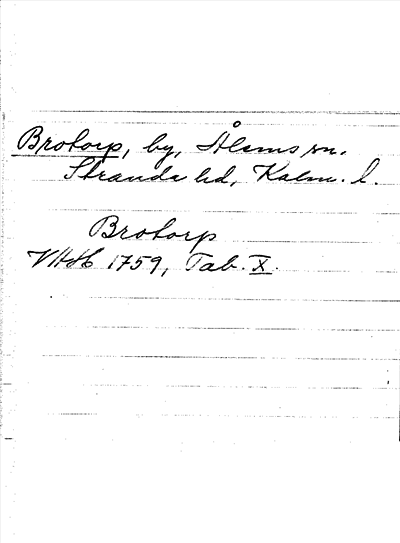 Brotorp, by, Ålems sn.
Stranda hd, Kalm. l.
Brotorp
VHAH 1759, Tab. X.